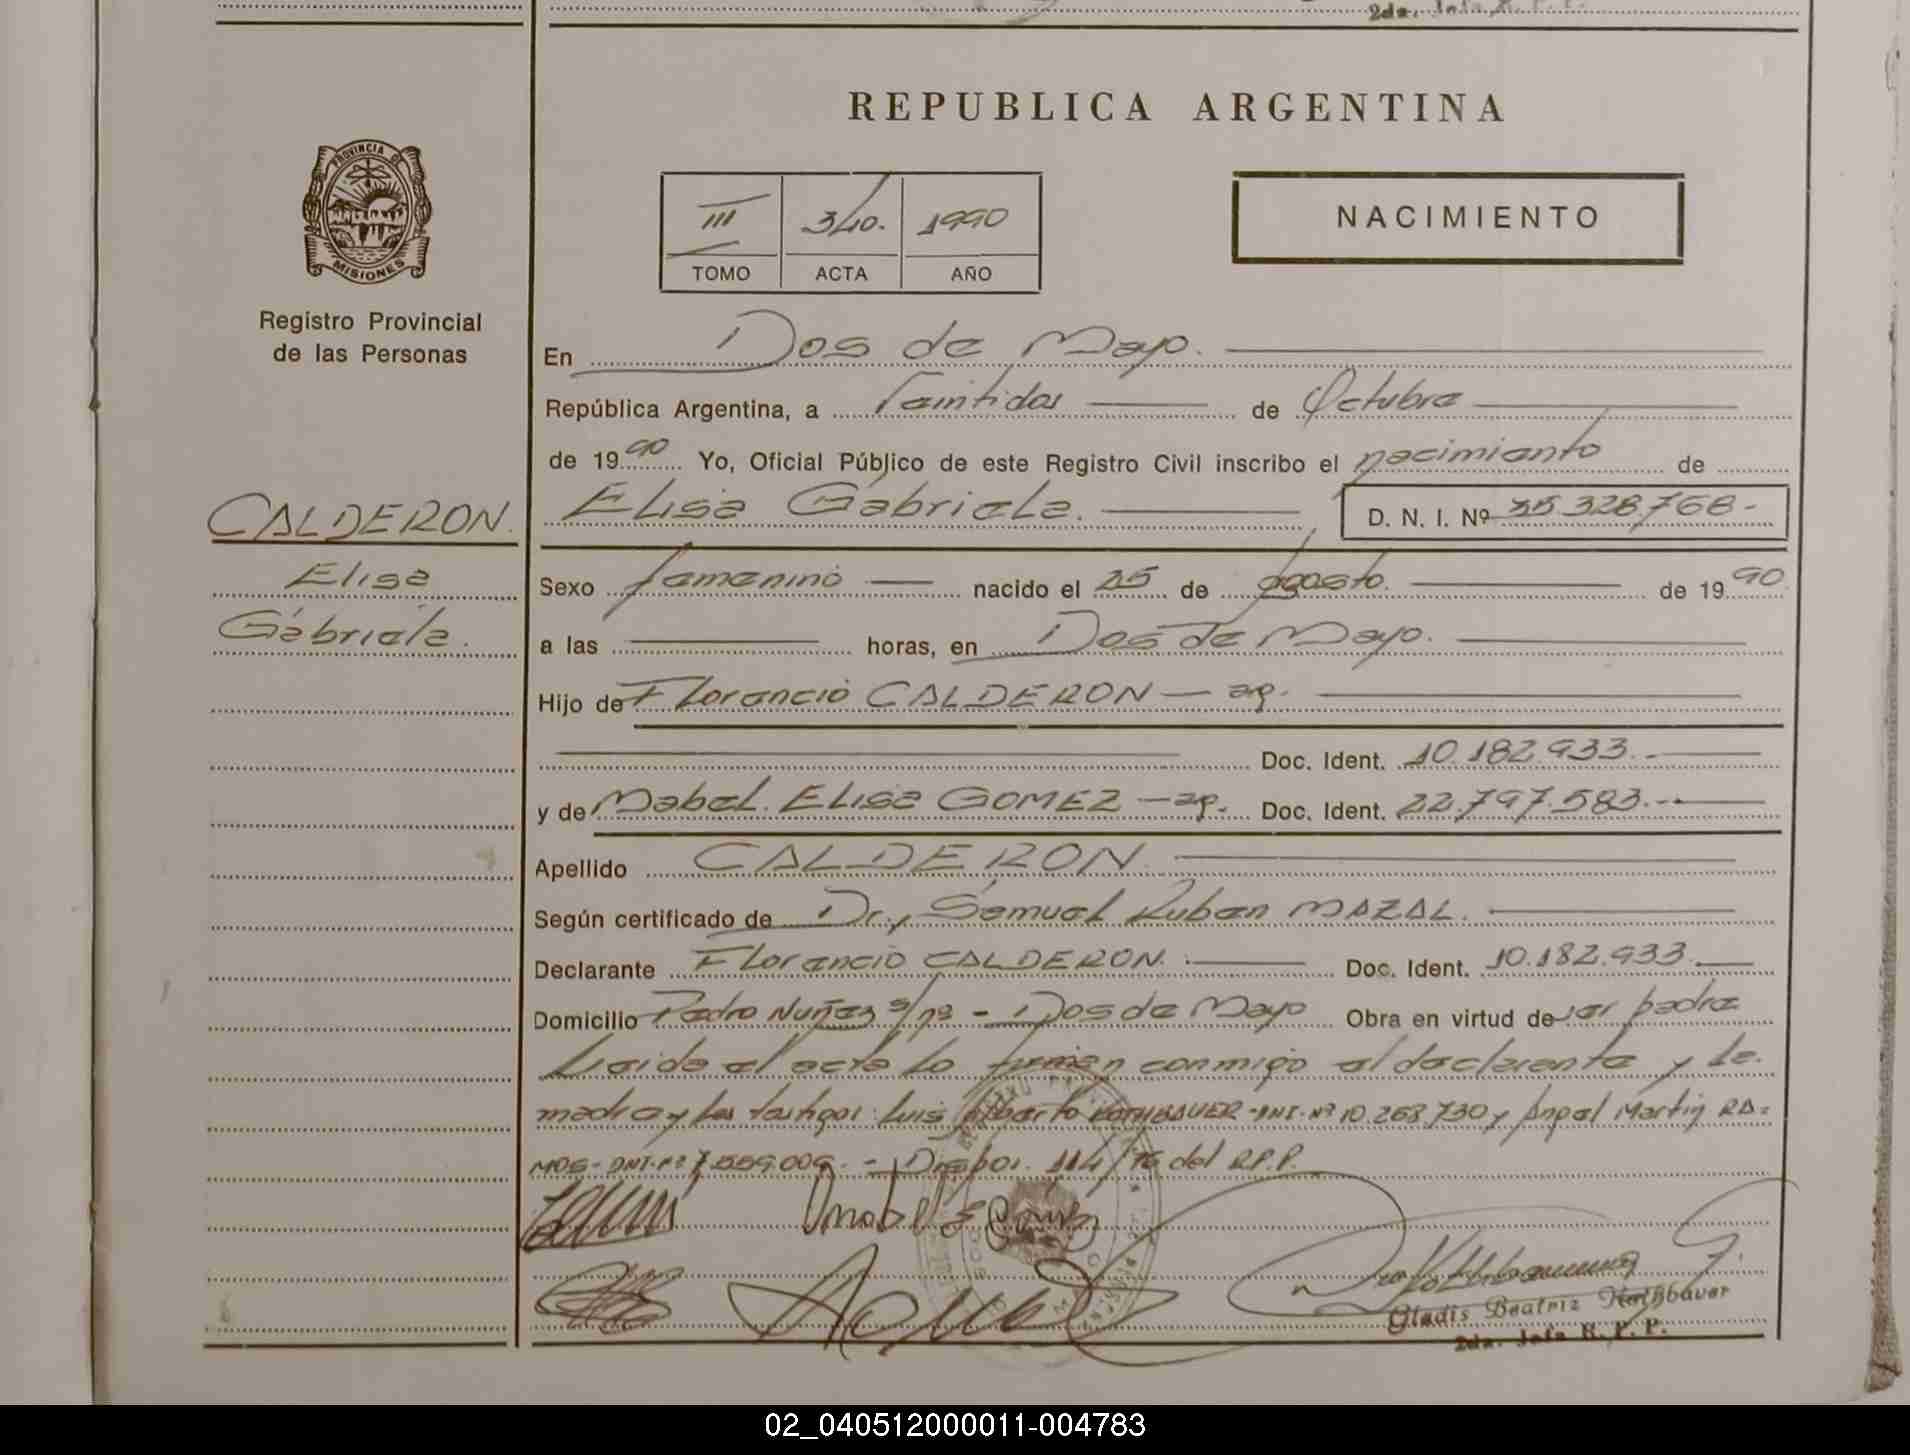 2da. Jefa R. P. P.
REPUBLICA ARGENTINA
PROVINCIA DE
MISIONES
Registro Provincial
de las Personas
III 340. 1990
TOMO ACTA AÑO
NACIMIENTO
En Dos de Mayo.
República Argentina, a Veintidos de Octubre
de 1990 Yo, Oficial Público de este Registro Civil inscribo el nacimiento de
CALDERON. Elisa Gabriela. D. N. I. Nº 35.328.768-
Elisa
Gabriela.
Sexo femenino nacido el 25 de agosto. de 1990
a las horas, en Dos de Mayo.
Hijo de Florencio CALDERON - ag.
Doc. Ident. 10.182.933.-
y de Mabel Elisa GOMEZ - ag. Doc. Ident. 22.797.583.-
Apellido CALDERON
Según certificado de Dr., Samuel Ruben MAZAL.
Declarante Florencio CALDERON. Doc. Ident. 10.182.933.
Domicilio Pedro Nuñez s/nº - Dos de Mayo Obra en virtud de ser padre
Leida el acta lo firman conmigo el declarante y la
madre y los testigos: Luis Alberto ROTHBAUER - DNI. Nº 10.268.730 y Angel Martin RA=
MOS - DNI. Nº 7.559.009. - Dispos. 114/76 del R.P.P.
Mabel E Gomez
Gladis Beatriz Rothbauer
2da. Jefa R. P. P.
02_040512000011-004783